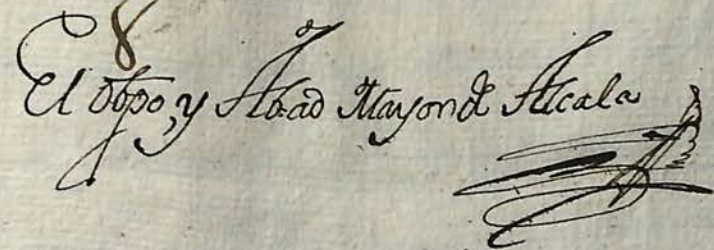 8
El Obpo, y Abad Mayor de Alcala